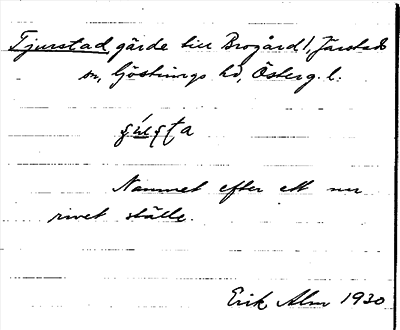 Tjurstad gärde till Brogård 1, Järstads
sn, Göstrings hd, Österg. l.

Namnet efter ett nu
rivet ställe.
Erik Alm 1930